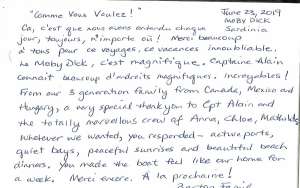 "Comme Vous Voulez!"
June 23, 2019
MOBY DICK
Sardinia
Ça, c'est que nous avons entendu chaque
jour, toujours, n'importe où! Merci beaucoup
à tous pour ce voyages, ce vacances innoubliable.
Le Moby Dick, c'est magnifique. Captaine Alain
connait beaucoup d'androits magnifiques. incroyables!
From our 3 generation family from Canada, Mexico and
Hungary, a very special thank you to Cpt Alain and
the totally marvellous crew of Anna, Chloe, Mathilde
Whatever we wanted, you responded - active ports,
quiet bays, peaceful sunrises and beautiful beach
dinners. You made the boat feel like our home for
a week. Merci encore. À la prochaine!